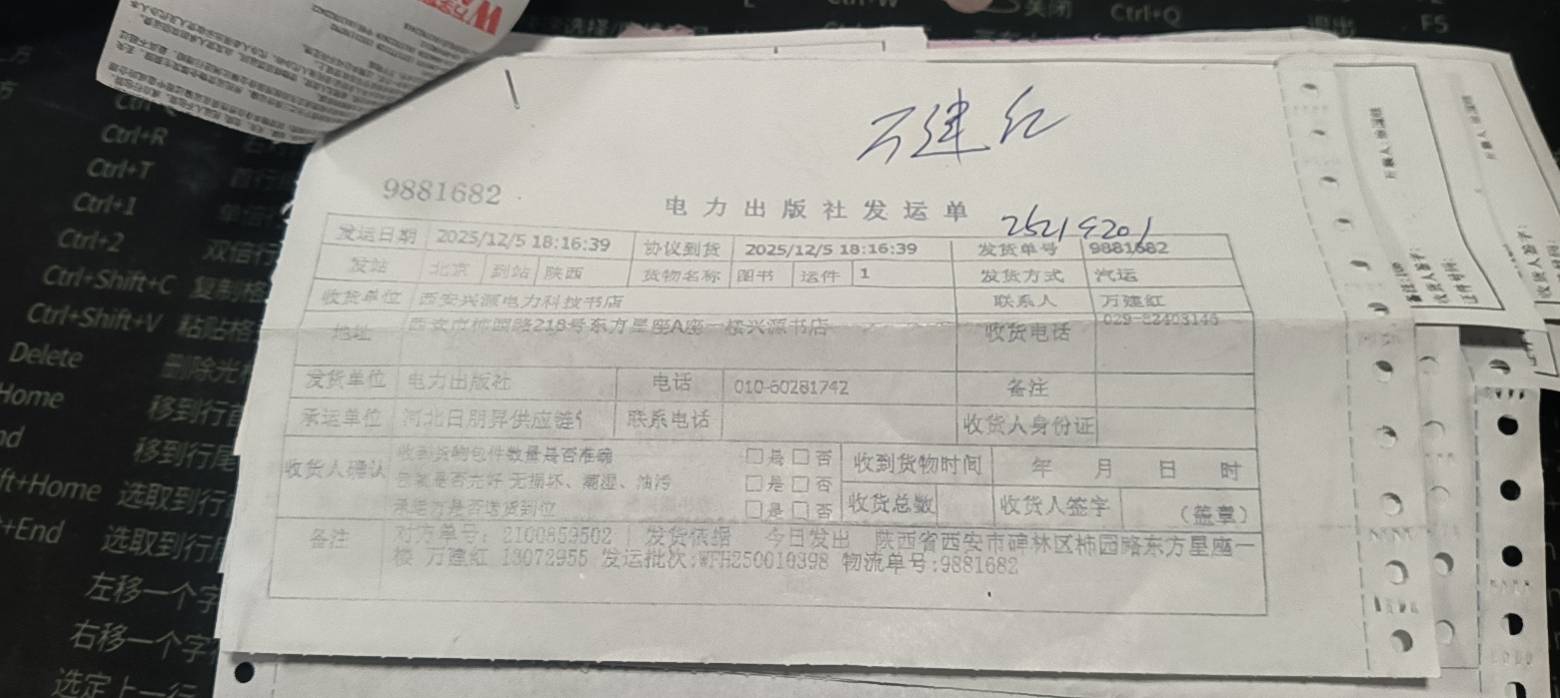 万建红
9881682
电力出版社发运单
25219201
发运日期 2025/12/5 18:16:39 协议到货 2025/12/5 18:16:39 发货单号 9881682
发站 北京 到站 陕西 货物名称 图书 运件 1 发货方式 汽运
收货单位 西安兴源电力科技书店 联系人 万建红
地址 西安市柿园路218号东方星座A座一楼兴源书店 收货电话 029-82403146
发货单位 电力出版社 电话 010-60281742 备注
承运单位 河北日朋昇供应链 联系电话 收货人身份证
收货人确认 收到货物包件数量是否准确 □是 □否 收到货物时间 年 月 日 时
包装是否完好 无损坏、潮湿、油污 □是 □否
承运方是否送货到位 □是 □否 收货总数 收货人签字 (签章)
备注 对方单号: 2100859502 | 发货依据 今日发出 陕西省西安市碑林区柿园路东方星座一
楼 万建红 13072955 发运批次:WFH250010398 物流单号:9881682
关闭 Ctrl+Q 退出 F5
Ctrl+R
Ctrl+T
Ctrl+1
Ctrl+2 双倍行
Ctrl+Shift+C 复制格
Ctrl+Shift+V 粘贴格
Delete 删除光
Home 移到行首
移到行尾
ft+Home 选取到行
+End 选取到行
左移一个字
右移一个字
选定上一行